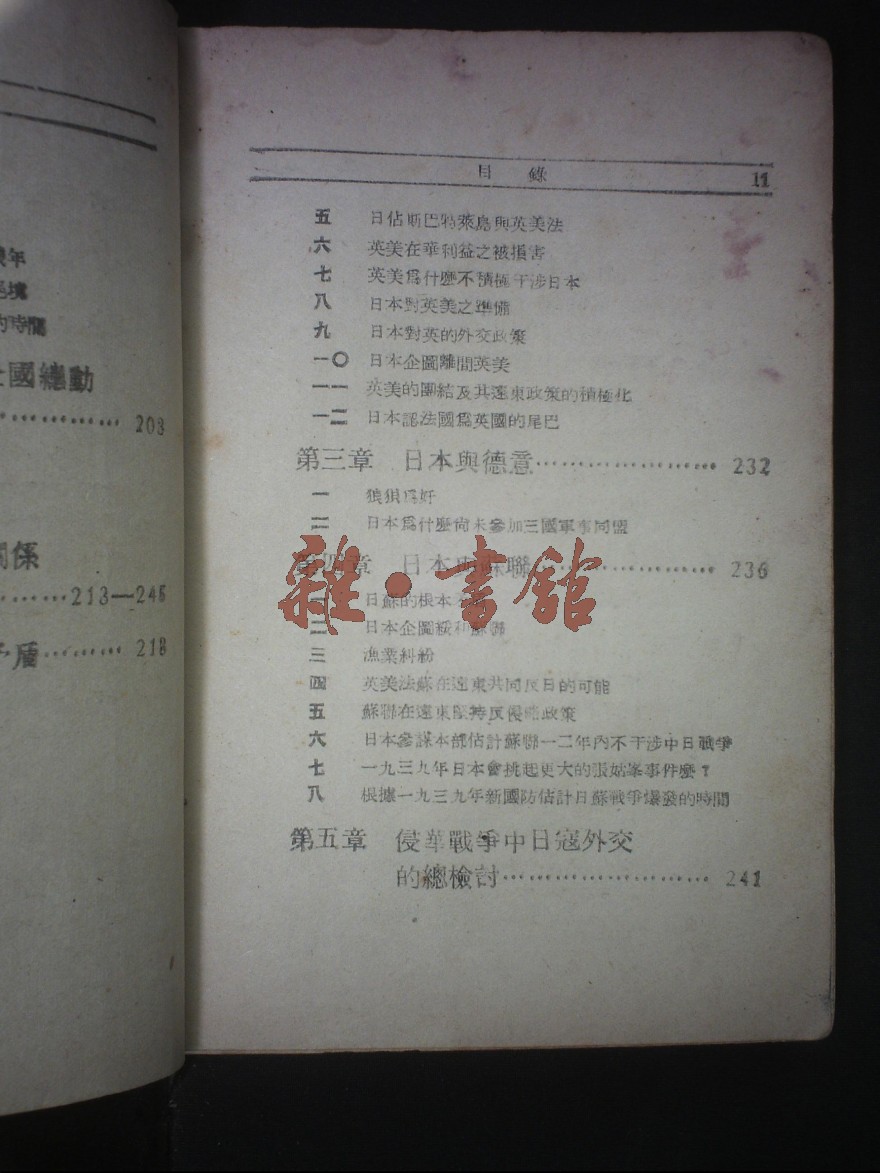 年
境
的時間
國總動
203
關係
213—245
矛盾 218
目錄 11
五 日佔斯巴特萊島與英美法
六 英美在華利益之被損害
七 英美爲什麽不積極干涉日本
八 日本對英美之準備
九 日本對英的外交政策
一〇 日本企圖離間英美
一一 英美的團結及其遠東政策的積極化
一二 日本認法國爲英國的尾巴
第三章 日本與德意 232
一 狼狽爲奸
二 日本爲什麽尙未參加三國軍事同盟
第四章 日本與蘇聯 236
一 日蘇的根本
二 日本企圖緩和蘇聯
三 漁業糾紛
四 英美法蘇在遠東共同反日的可能
五 蘇聯在遠東堅持反侵略政策
六 日本參謀本部估計蘇聯一二年內不干涉中日戰爭
七 一九三九年日本會挑起更大的張姑峯事件麽?
八 根據一九三九年新國防估計日蘇戰爭爆發的時間
第五章 侵華戰爭中日寇外交
的總檢討 241
雜·書館